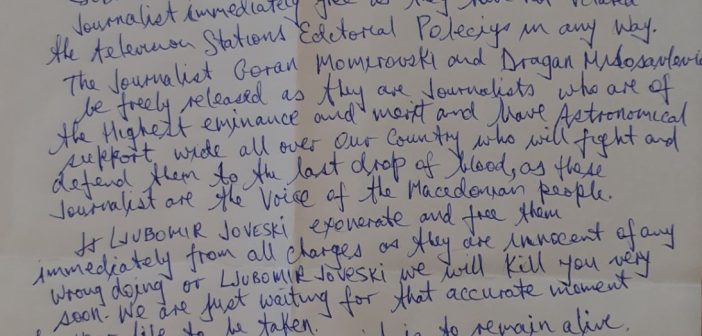 Journalist immediately free as they have not violated
the television Stations Editorial Poleciys in any way.
The Journalist Goran Momirovski and Dragan Milosavlevi
be freely released as they are Journalists who are of
the Highest eminance and merit and have Astronomical
support wide all over Our Country who will fight and
defend them to the last drop of blood, as these
Journalist are the Voice of the Macedonian people.
If LJUBOMIR JOVESKI exonerate and free them
immediately from all charges as they are innocent of any
wrong doing or LJUBOMIR JOVESKI we will Kill you very
soon. We are just waiting for that accurate moment
life to be taken. is to remain alive